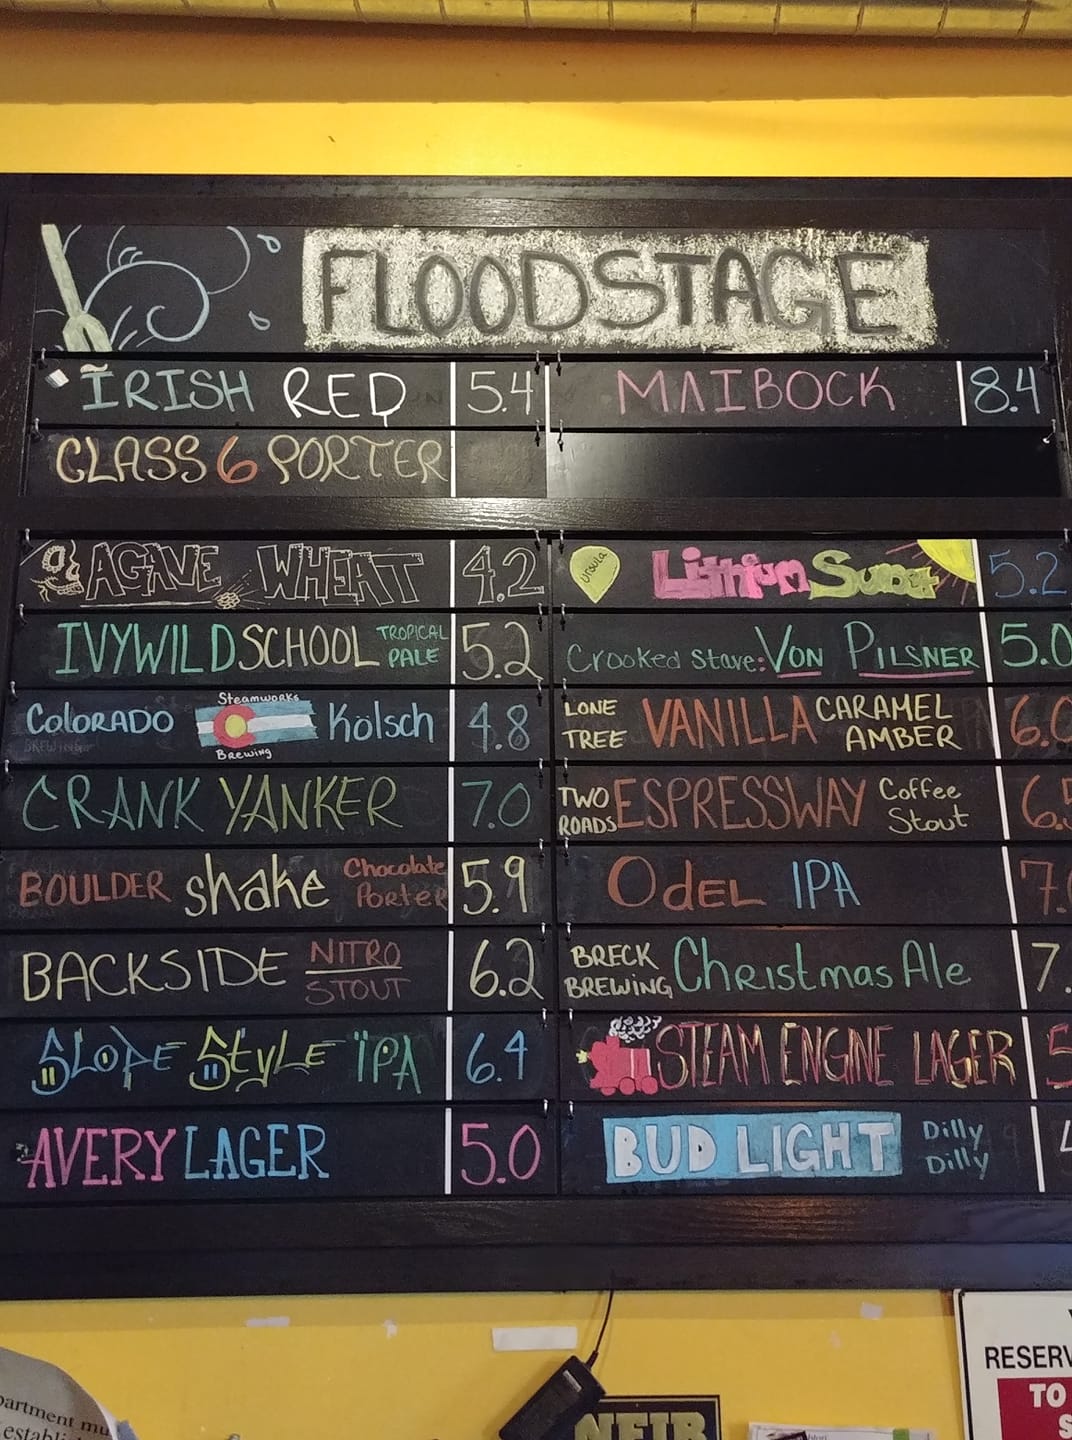 FLOODSTAGE
IRISH RED 5.4
MAIBOCK 8.4
CLASS 6 PORTER
AGAVE WHEAT 4.2
Ursula Lithium Sunset 5.2
IVYWILD SCHOOL TROPICAL PALE 5.2
Crooked Stave: VON PILSNER 5.0
COLORADO Steamworks Brewing Kölsch 4.8
LONE TREE VANILLA CARAMEL AMBER 6.0
CRANK YANKER 7.0
TWO ROADS ESPRESSWAY Coffee Stout 6.5
BOULDER shake Chocolate Porter 5.9
OdEL IPA 7.0
BACKSIDE NITRO STOUT 6.2
BRECK BREWING Christmas Ale 7.
SLOPE STyLE IPA 6.4
STEAM ENGINE LAGER 5
AVERY LAGER 5.0
BUD LIGHT Dilly Dilly 4
RESERV
TO
artment mu
establi